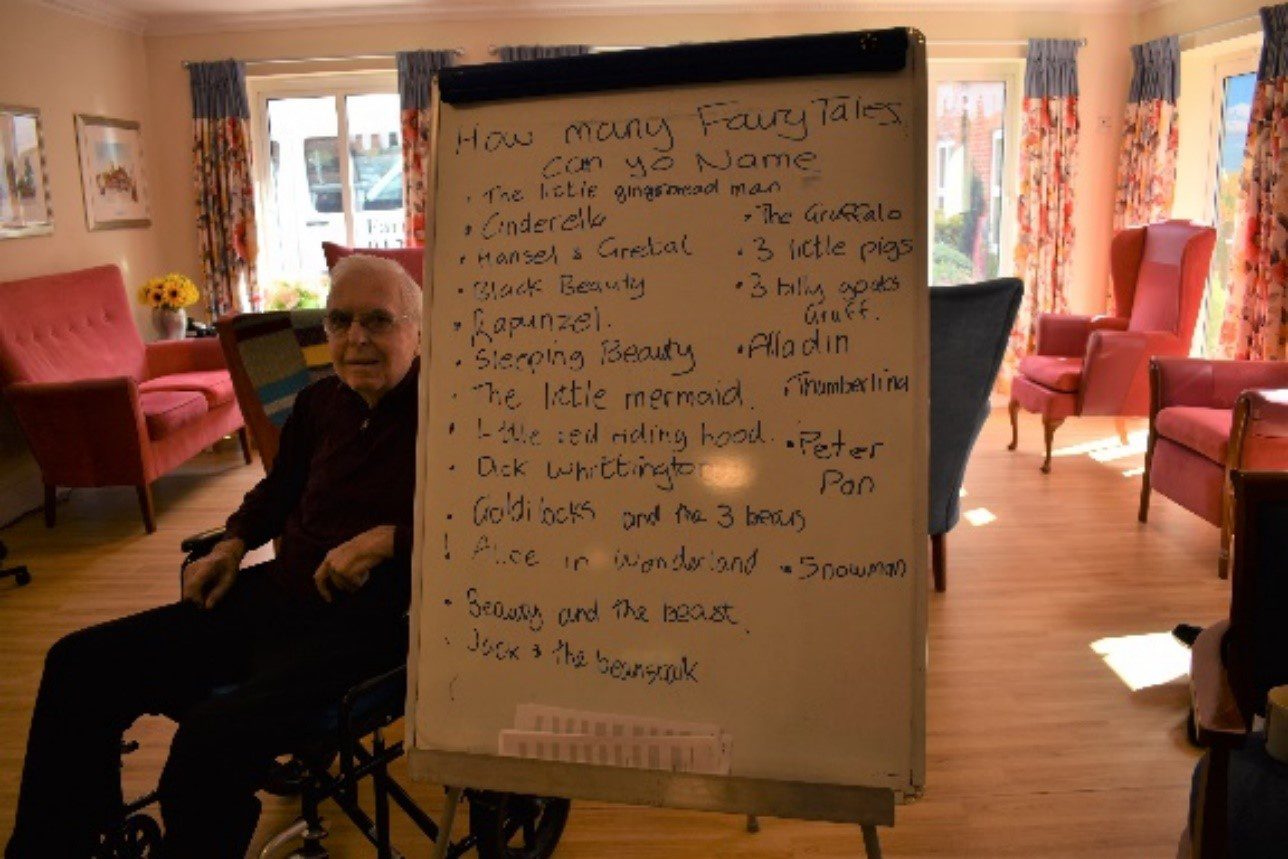 How many Fairy Tales
can yo Name
• The little gingerbread man
• Cinderella
• Hansel & Gretal
• Black Beauty
• Rapunzel.
• Sleeping Beauty
• The little mermaid.
• Little red riding hood.
• Dick Whittington
• Goldilocks and the 3 bears
• Alice in Wonderland
• Beauty and the beast.
• Jack & the beanstalk
• The Gruffalo
• 3 little pigs
• 3 billy goats
Gruff.
• Alladin
• Thumberlina
• Peter
Pan
• Snowman